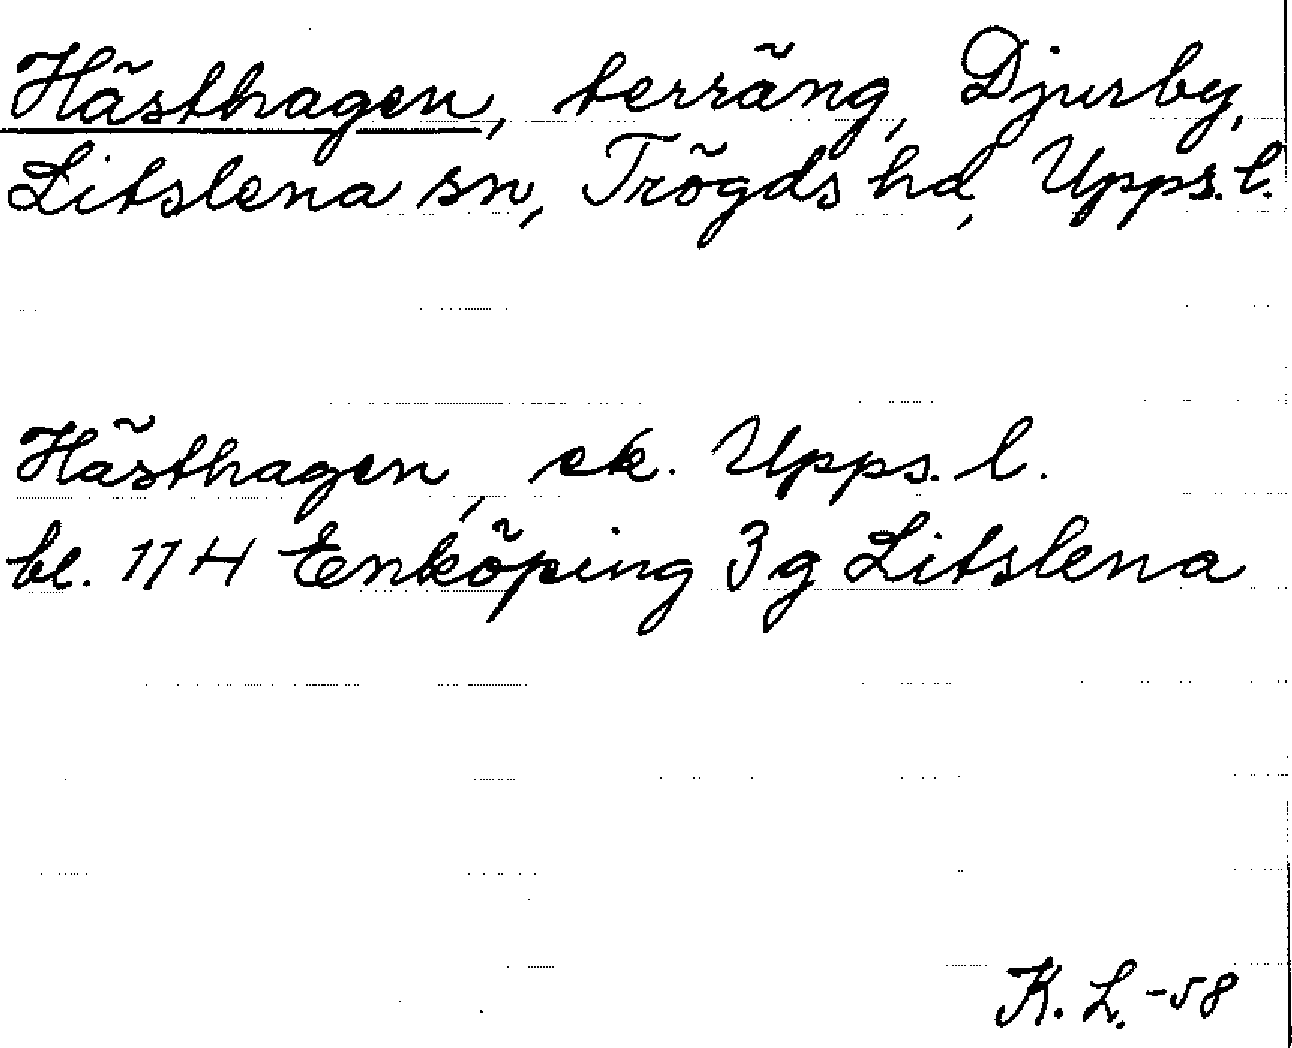 Hästhagen, terräng, Djurby,
Litslena sn, Trögds hd, Upps. l.
Hästhagen, ek. Upps. l.
bl. 11 H Enköping 3 g Litslena
K. L. -58